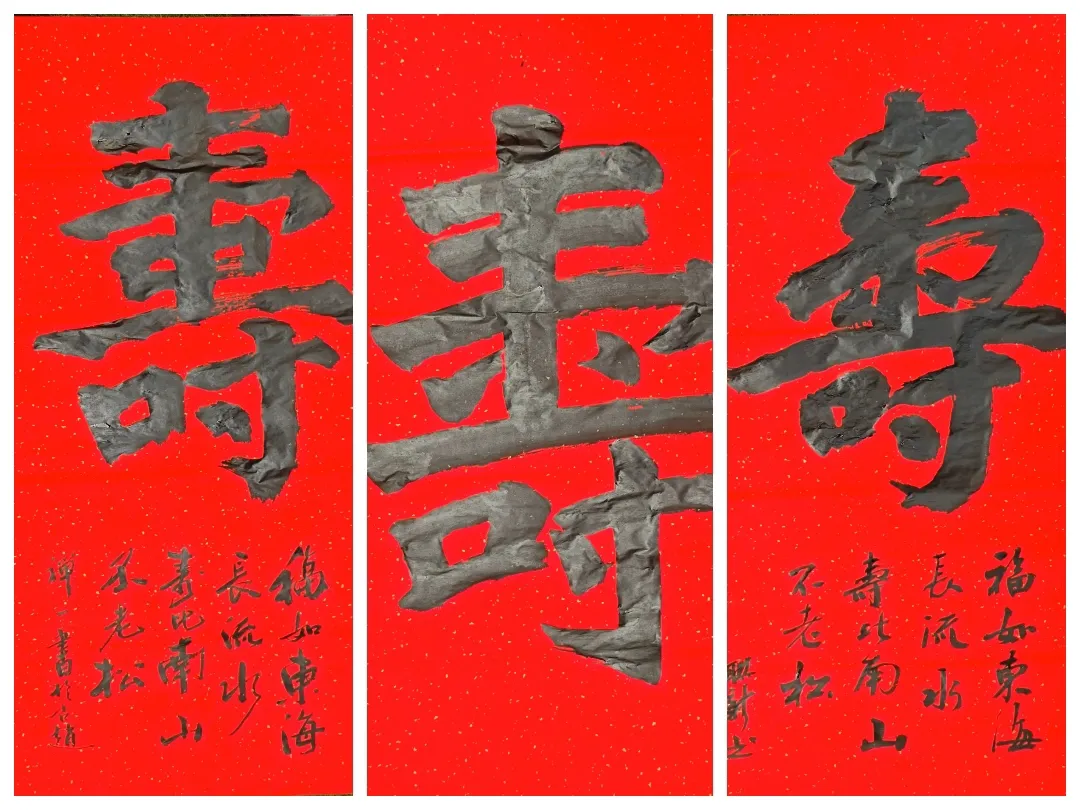 壽
福如東海
長流水
寿比南山
不老松
書於
壽
壽
福如東海
長流水
壽比南山
不老松